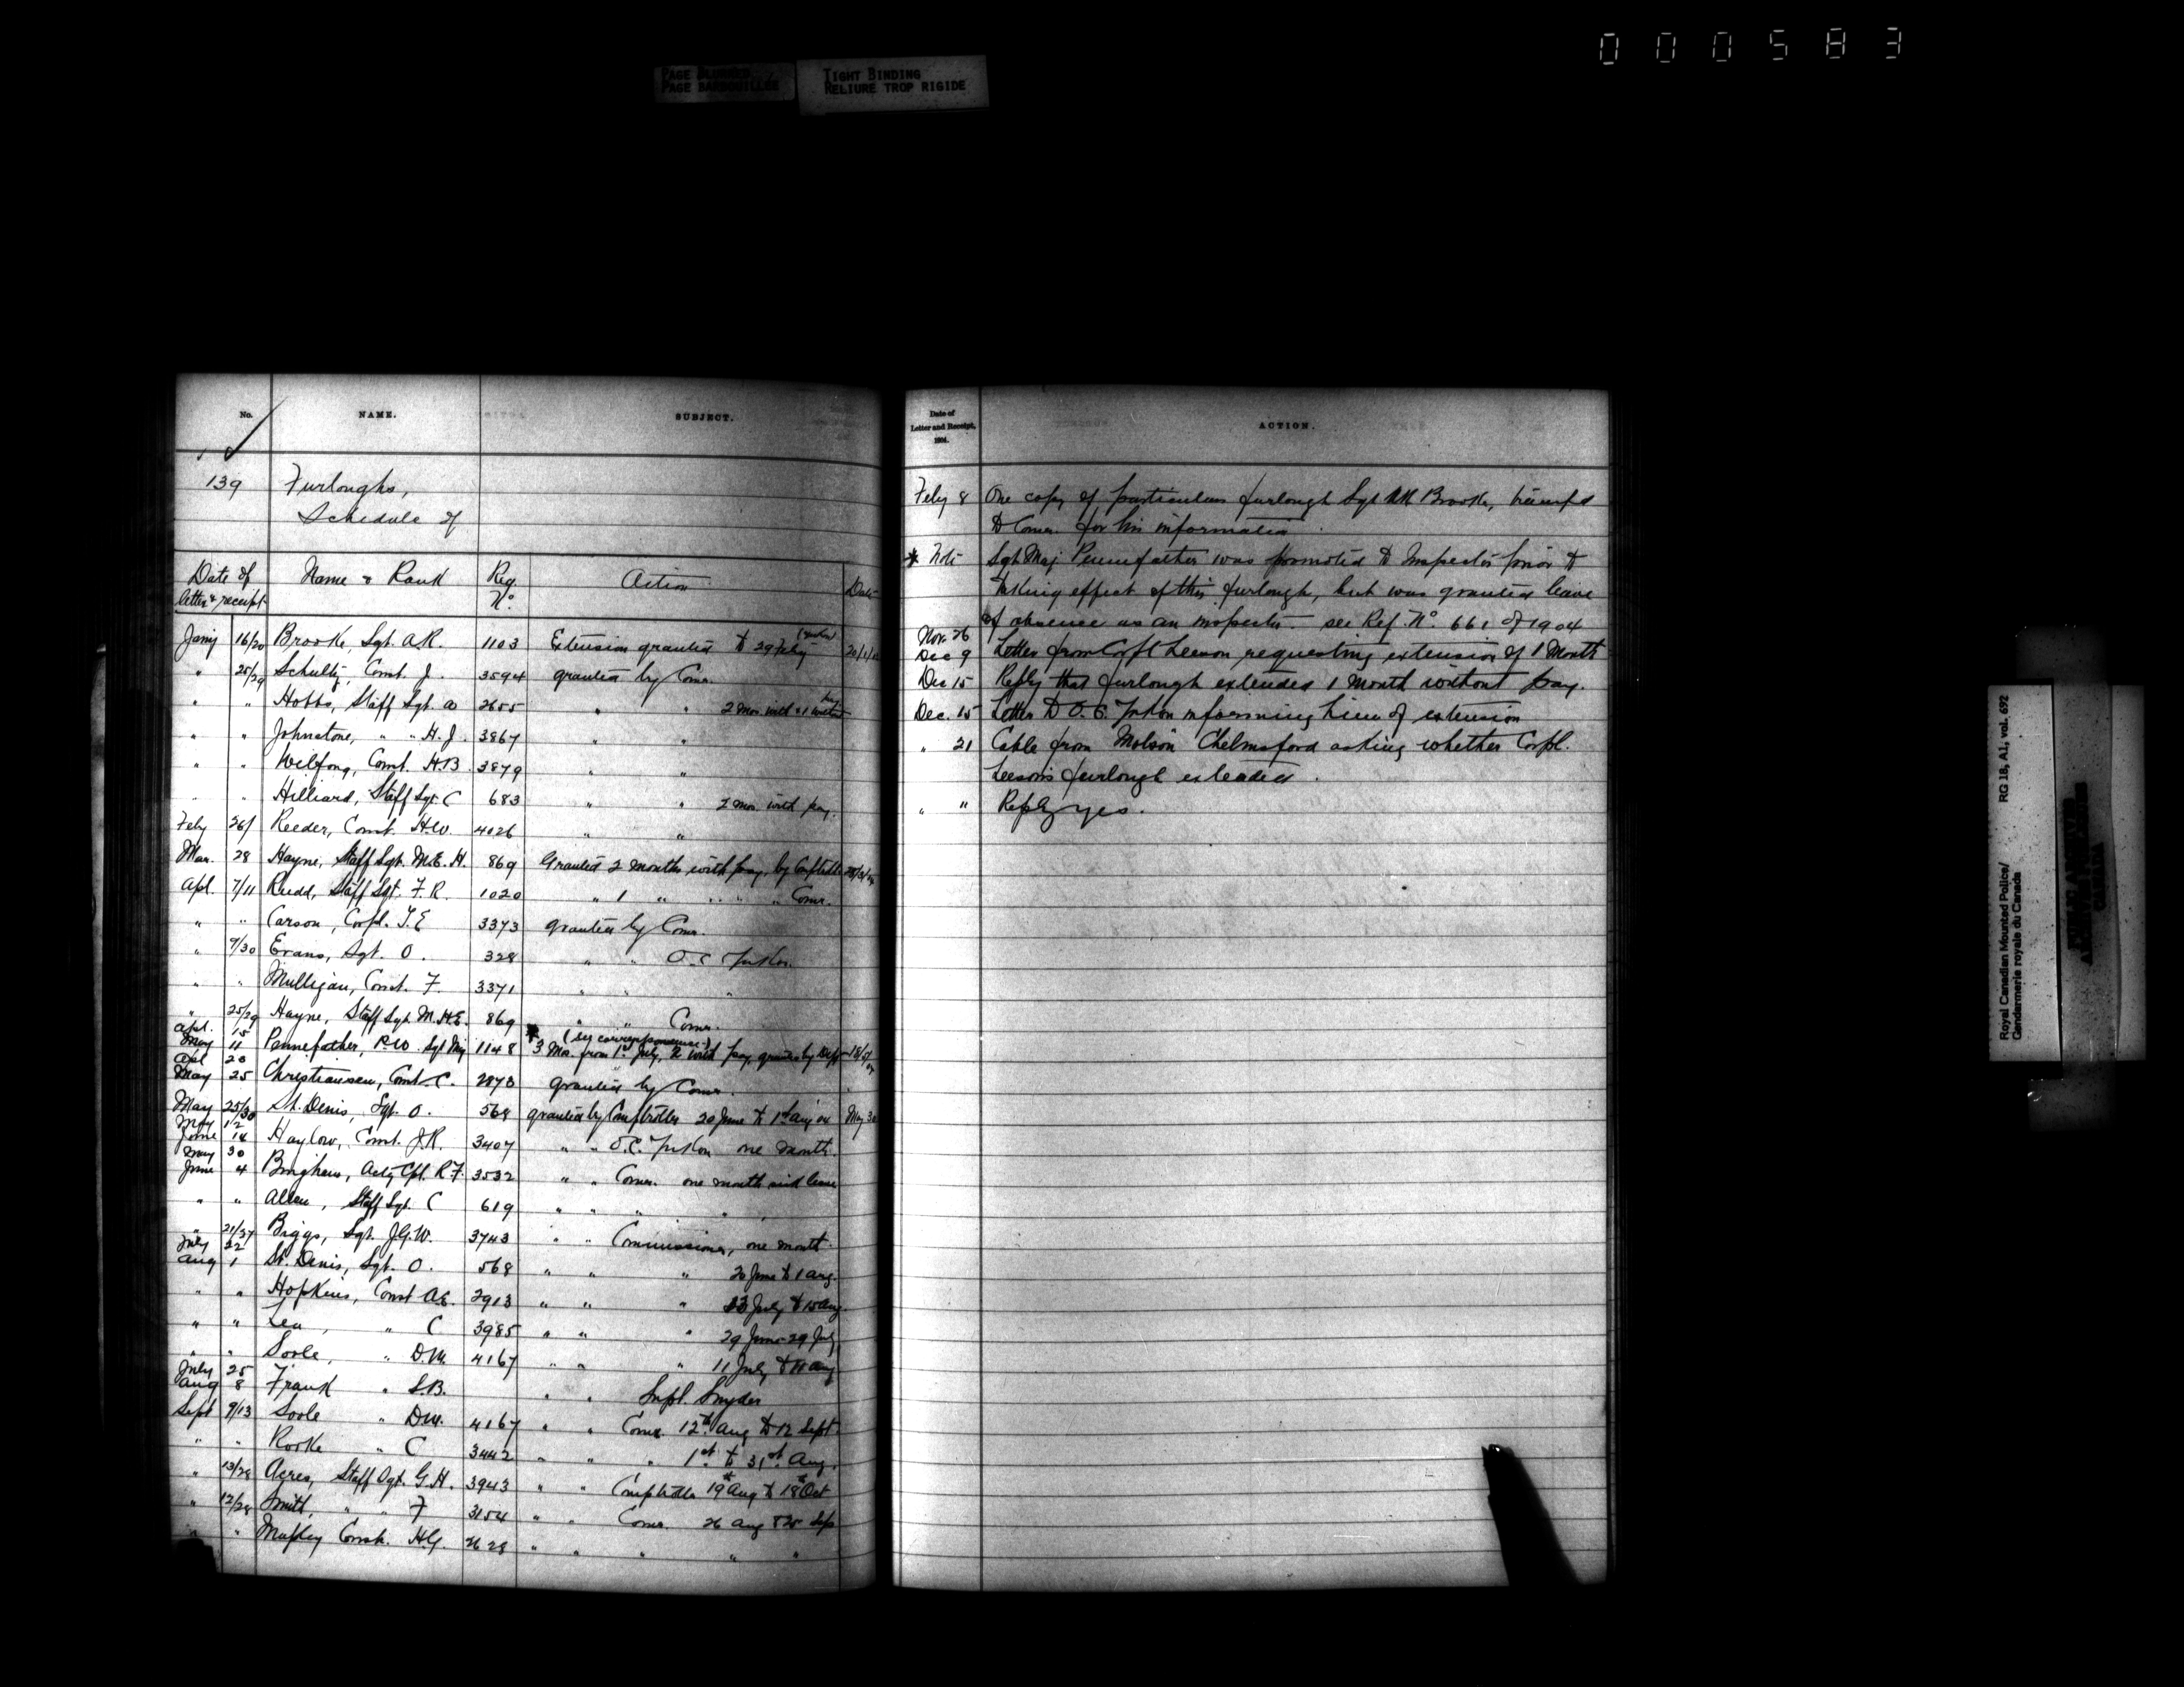 000583
PAGE BLURRED
PAGE BARBOUILLÉE
TIGHT BINDING
RELIURE TROP RIGIDE
No. NAME. SUBJECT.
139 Furloughs,
Schedule of
Date of letter & receipt Name & Rank Reg. No. Action Date
Jany 16/20 Brooke, Sgt. A.R. 1103 Extension granted to 29 Feby
" 25/29 Schultz, Const. J. 3594 granted by Comr.
" " Hobbs, Staff Sgt. 2655 " " 2 Mos. with & 1 without pay
" " Johnstone, " " H.J. 3867 " "
" " Wilfong, Const. H.B. 3879 " "
" " Hilliard, Staff Sgt. C 683 " " 2 mos. with pay.
Feby 26/ Reeder, Const. H.W. 4026 " "
Mar. 28 Hayne, Staff Sgt. M.E.H. 869 Granted 2 months with pay, by Comptroller
Apl. 7/11 Rudd, Staff Sgt. F.R. 1020 " 1 " " " " Comr.
" " Carson, Corpl. T.E 3373 granted by Comr.
" 9/30 Evans, Sgt. O. 328 " " O.C. Yukon.
" " Mulligan, Const. F. 3371 " " "
" 25/29 Hayne, Staff Sgt. M.H.E. 869 " " Comr.
Apl. 15 May 11 Pennefather, P.W. Sgt Maj 1148 * (see correspondence) 3 Mos. from 1st July, 2 with pay, granted by
Apl 20 May 25 Christiansen, Const C. 2873 granted by Comr.
May 25/30 St. Denis, Sgt. O. 568 granted by Comptroller 20 June to 1st Aug 04 May 30
May 12 June 14 Haylow, Const. J.R. 3407 " " O.C. Yukon one month.
May 30 June 4 Bingham, Actg Cpl. R.F. 3532 " " Comr. one month sick leave
" " Allen, Staff Sgt. C 619 " " " "
" 21/27 Biggs, Sgt. J.G.W. 3743 " " Commissioner, one month.
July 22 Aug 1 St. Denis, Sgt. O. 568 " " " 20 June to 1 Aug.
" " Hopkins, Const A.E. 2913 " " " 23 July to 15 Aug
" " Lea, " C 3985 " " " 29 June-29 July
" " Soole, " D.M. 4167 " " " 11 July to 11 Aug
July 25 Aug 8 Frank " S.B. " " Supt. Snyder
Sept 9/13 Soole " D.M. 4167 " " Comr. 12th Aug to 12 Sept
" " Rooke " C 3442 " " " 1st to 31st Aug.
" 13/28 Acres, Staff Sgt. G.H. 3943 " " Comptroller 19th Aug to 18th Oct
" 12/28 Smith, " " F 3154 " " Comr. 26 Aug & 25 Sep
" " Const. H.G. 2628 " " " " "
Date of Letter and Receipt, 1904. ACTION.
Feby 8 One copy of particulars furlough Sgt AR Brooke, transfd
to Comr. for his information.
* Note Sgt Maj Pennefather was promoted to Inspector prior to
taking effect of this furlough, but was granted leave
of absence as an inspector. see Ref. No. 661 of 1904
Nov. 26 Dec 9 Letter from Corpl Leeson requesting extension of 1 Month
Dec 15 Reply that furlough extended 1 month without pay.
Dec. 15 Letter to O.C. Yukon informing him of extension
" 21 Cable from Molson Chelmsford asking whether Corpl.
Leeson's furlough extended.
" " Reply yes.
Royal Canadian Mounted Police/
Gendarmerie royale du Canada
RG 18, A1, vol. 692
PUBLIC ARCHIVES
ARCHIVES PUBLIQUES
CANADA